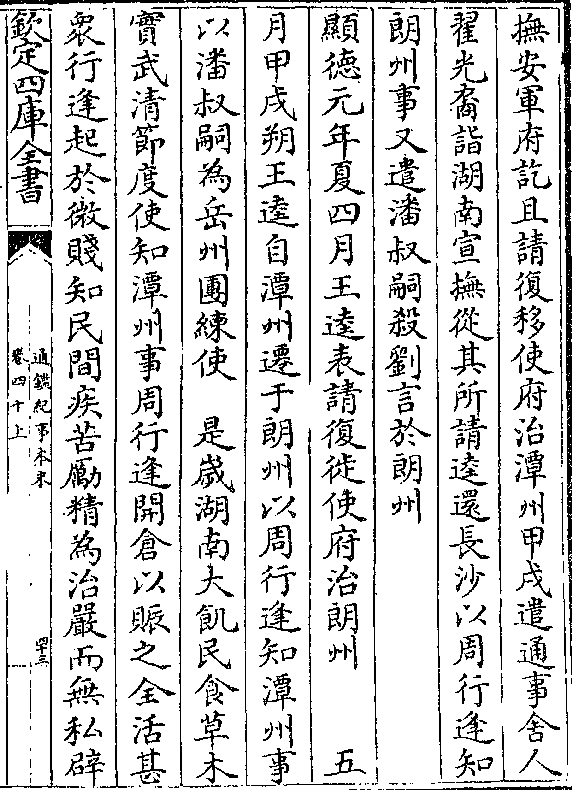 撫安軍府訖且請復移使府治潭州甲戌遣通事舍人
翟光裔詣湖南宣撫從其所請逵還長沙以周行逢知
朗州事又遣潘叔嗣殺劉言於朗州
顯德元年夏四月王逵表請復徙使府治朗州　五
月甲戌朔王逵自潭州遷于朗州以周行逢知潭州事
以潘叔嗣為岳州團練使　是嵗湖南大飢民食草木
實武清節度使知潭州事周行逢開倉以賑之全活甚
衆行逢起於微賤知民間疾苦勵精為治嚴而無私辟
欽定四庫全書
通鑑紀事本末
卷四十上
四十三